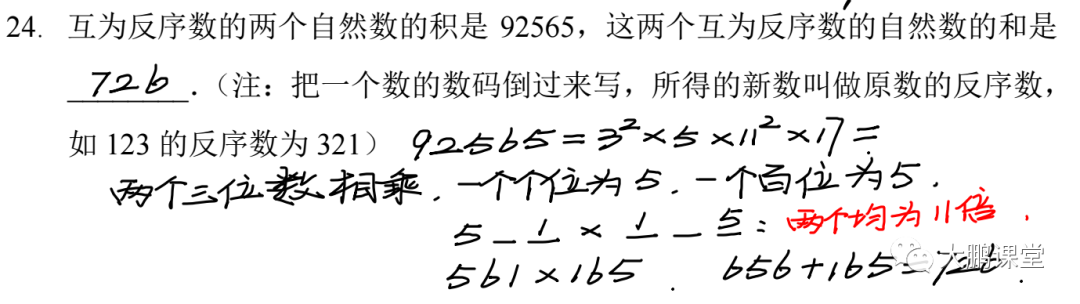 24. 互为反序数的两个自然数的积是 92565，这两个互为反序数的自然数的和是
726.（注：把一个数的数码倒过来写，所得的新数叫做原数的反序数，
如 123 的反序数为 321） 92565=3²×5×11²×17=
两个三位数相乘. 一个个位为5. 一个百位为5.
5 _ 1 × 1 _ 5: 两个均为11倍.
561×165. 656+165=726.
大鹏课堂